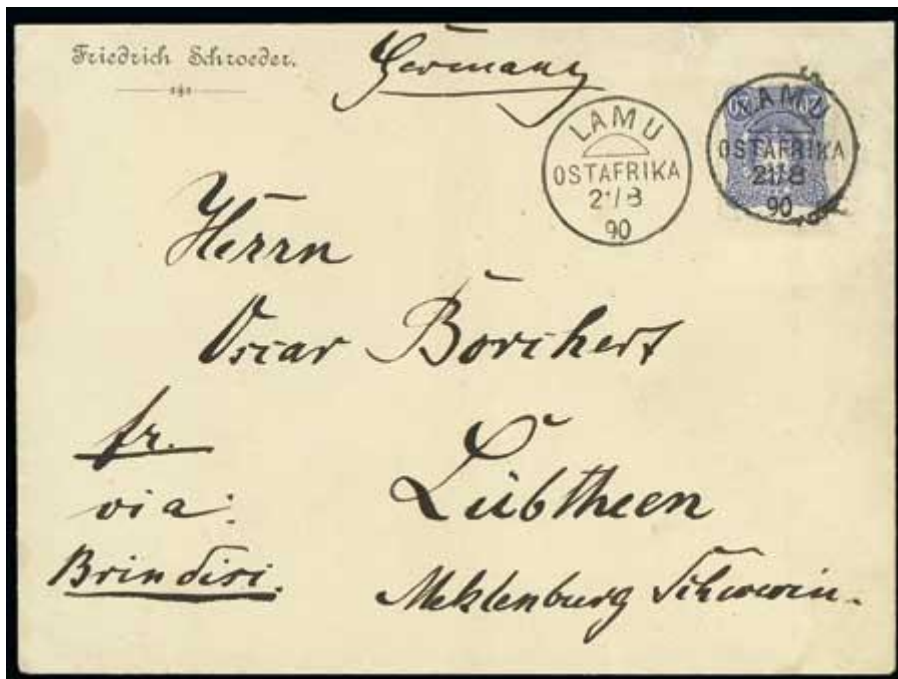 Friedrich Schroeder.
Germany
LAMU
OSTAFRIKA
21/8
90
LAMU
OSTAFRIKA
21/8
90
Herrn
Oscar Borchert
fr.
via:
Brindisi.
Lübtheen
Meklenburg Schwerin.